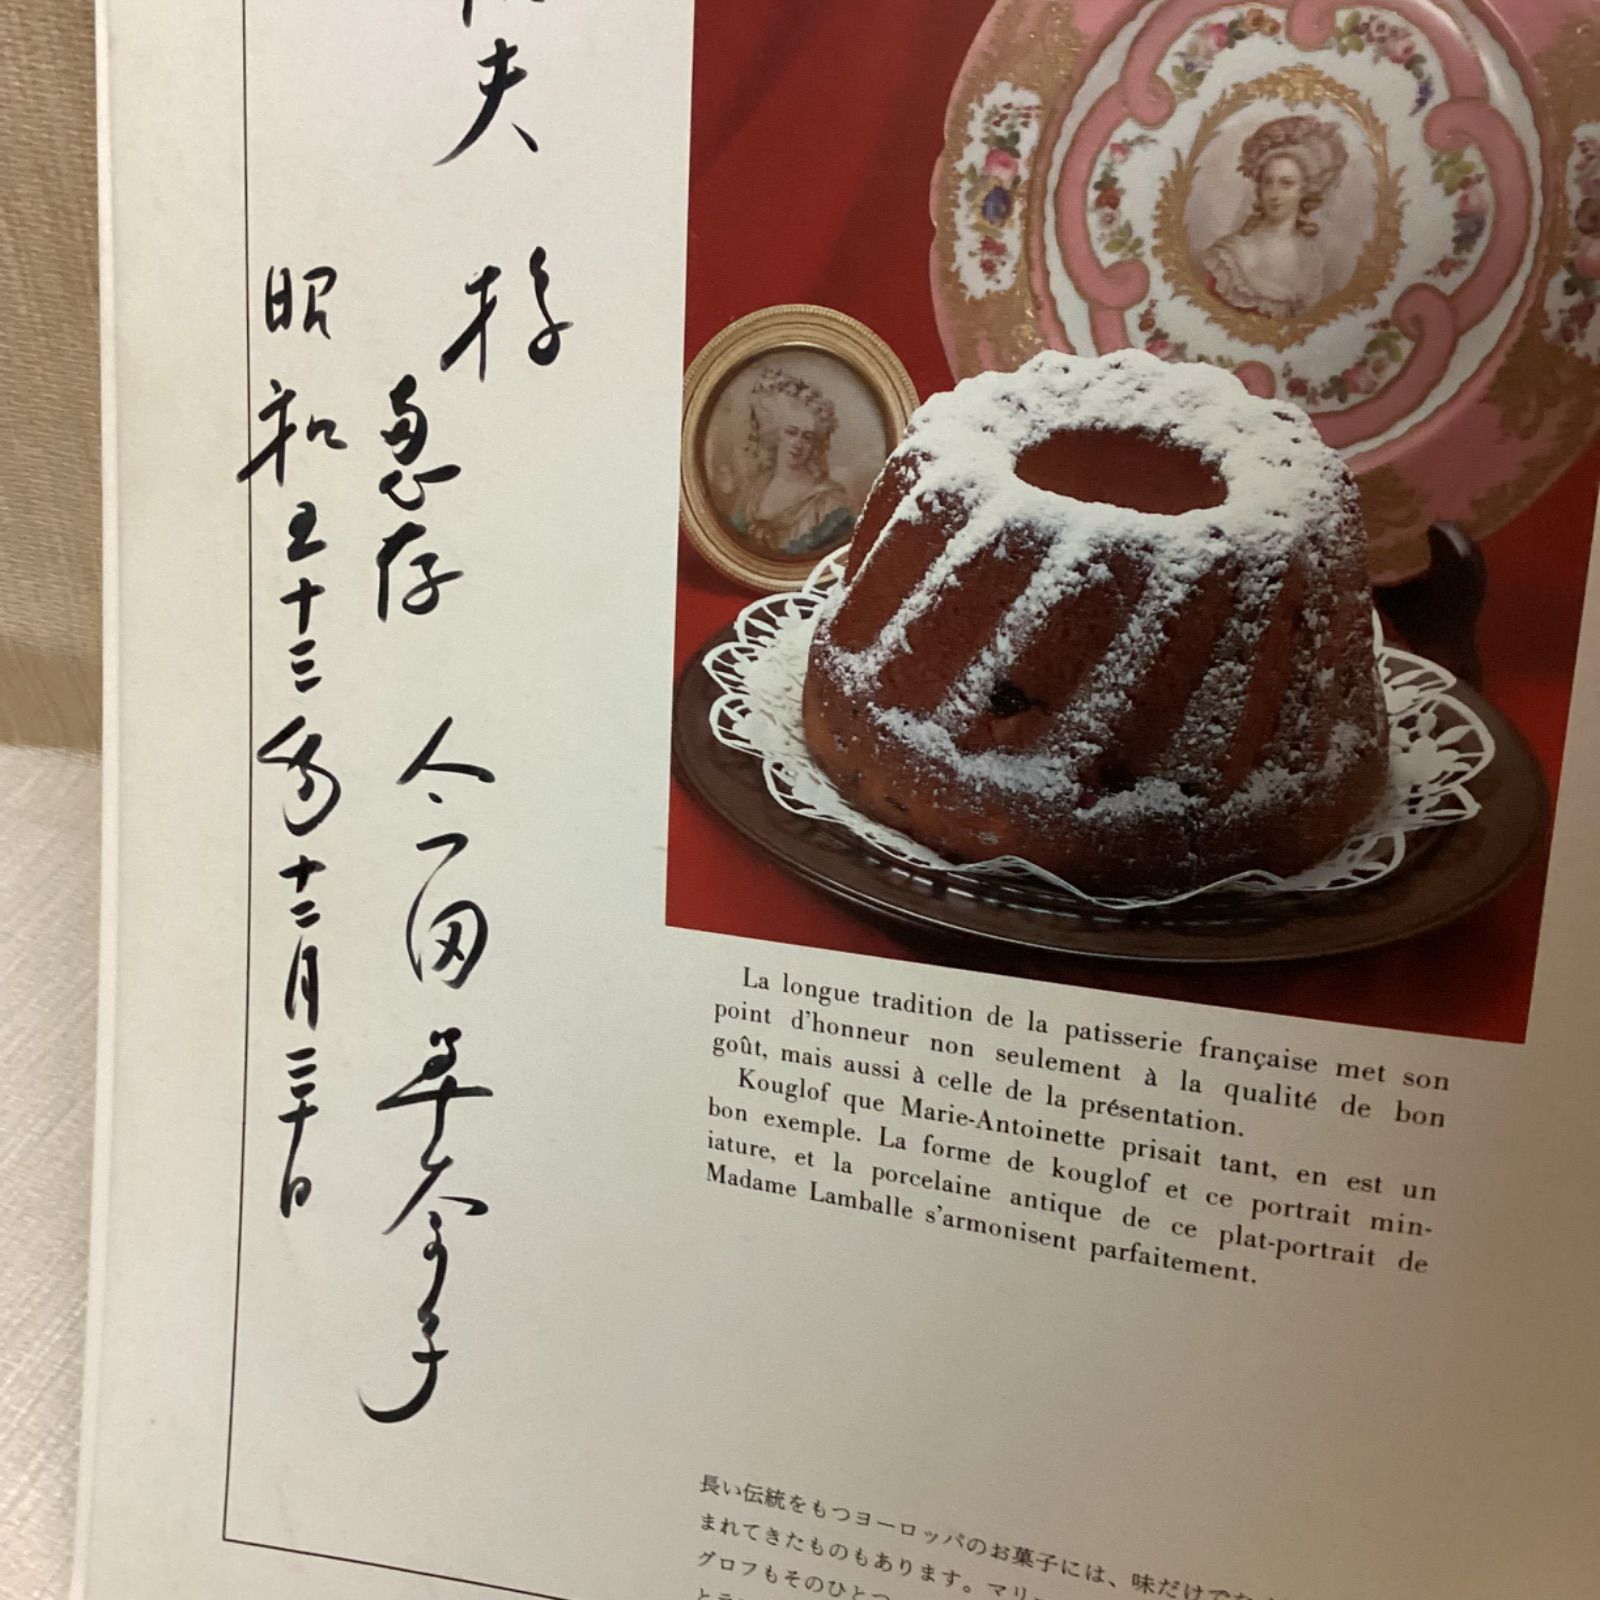 夫 様
恵存 今田美奈子
昭和五十三年十二月三十日
La longue tradition de la patisserie française met son
point d'honneur non seulement à la qualité de bon
goût, mais aussi à celle de la présentation.
Kouglof que Marie-Antoinette prisait tant, en est un
bon exemple. La forme de kouglof et ce portrait min-
iature, et la porcelaine antique de ce plat-portrait de
Madame Lamballe s'armonisent parfaitement.
長い伝統をもつヨーロッパのお菓子には、味だけでな
まれてきたものもあります。マリ
グロフもそのひとつ